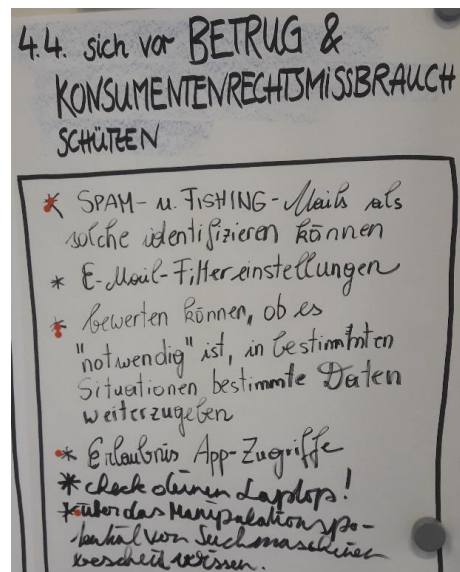 4.4. sich vor BETRUG &
KONSUMENTENRECHTSMISSBRAUCH
SCHÜTZEN
* SPAM- u. FISHING-Mails als
solche identifizieren können
* E-Mail-Filtereinstellungen
* bewerten können, ob es
"notwendig" ist, in bestimmten
Situationen bestimmte Daten
weiterzugeben
* Erlaubnis App-Zugriffe
* check deinen Laptop!
* über das Manipulationspo-
tential von Suchmaschinen
bescheid wissen.